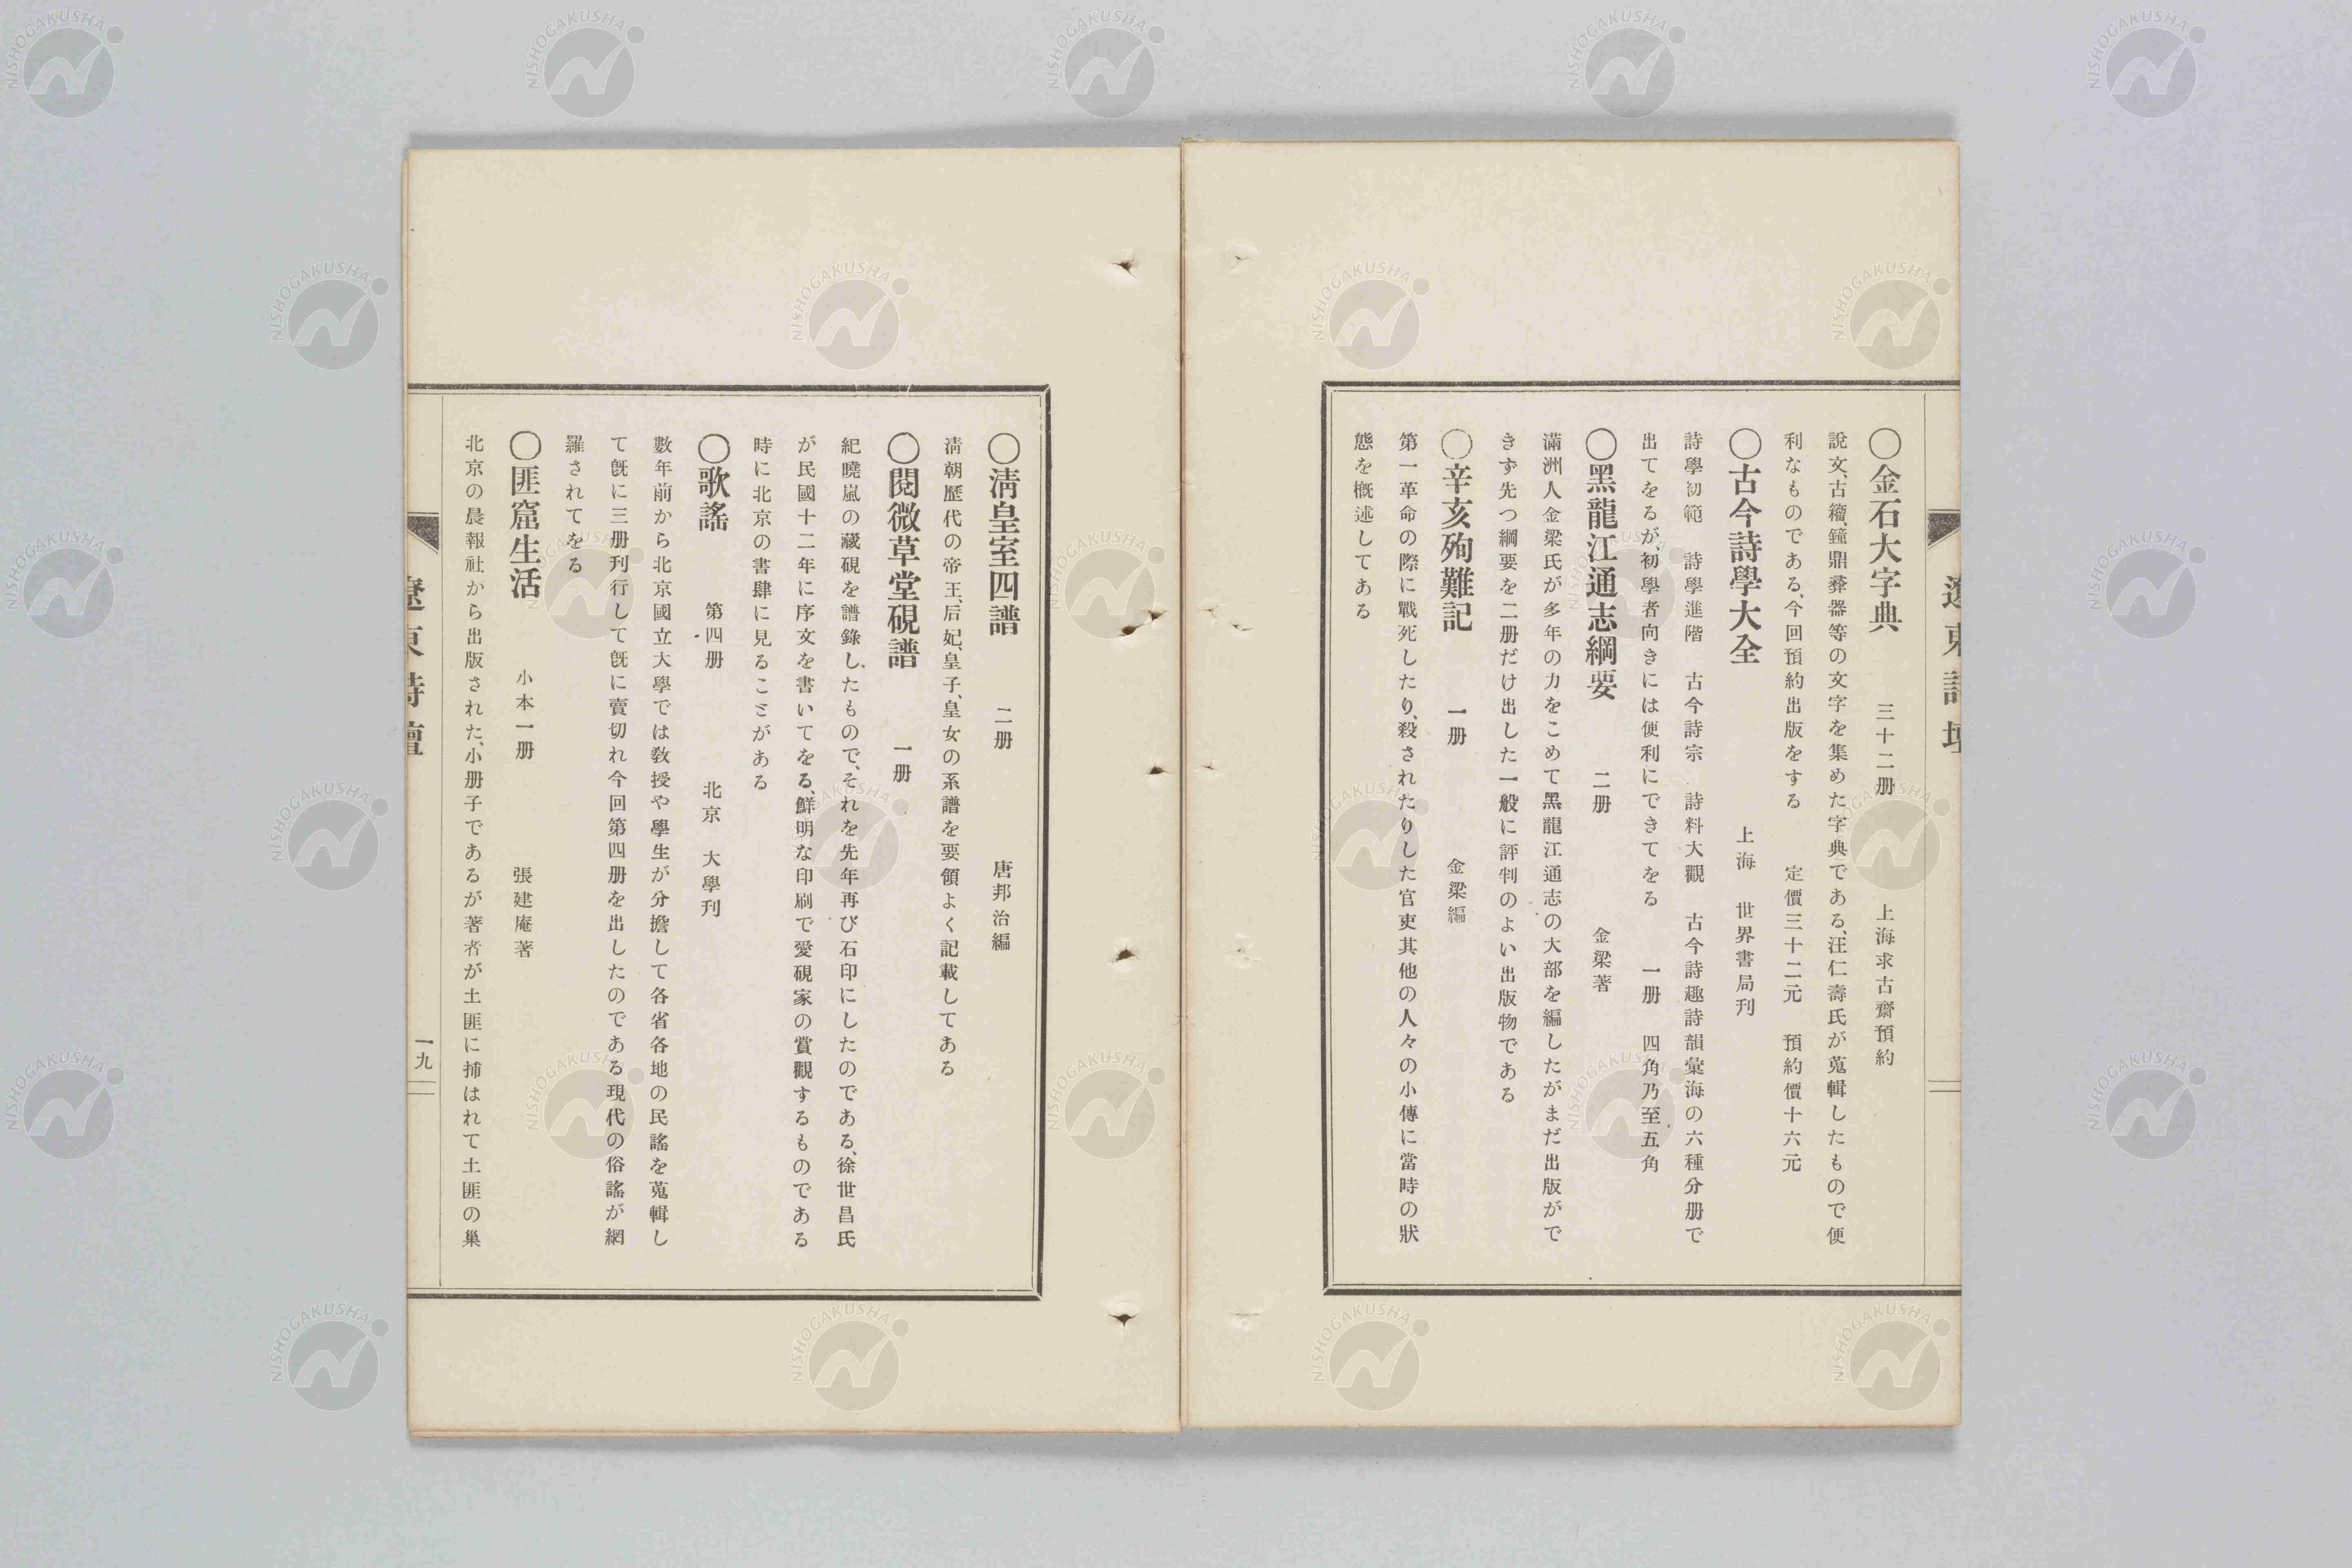 遼東詩壇
〇金石大字典　三十二册　上海求古齋預約
說文、古籀、鐘鼎彝器等の文字を集めた字典である、汪仁壽氏が蒐輯したもので便
利なものである、今回預約出版をする　定價三十二元　預約價十六元
〇古今詩學大全　上海　世界書局刊
詩學初範　詩學進階　古今詩宗　詩料大觀　古今詩趣詩韻彙海の六種分册で
出てをるが、初學者向きには便利にできてをる　一册　四角乃至五角
〇黑龍江通志綱要　二册　金梁著
滿洲人金梁氏が多年の力をこめて黑龍江通志の大部を編したがまだ出版がで
きず先つ綱要を二册だけ出した一般に評判のよい出版物である
〇辛亥殉難記　一册　金梁編
第一革命の際に戰死したり、殺されたりした官吏其他の人々の小傳に當時の狀
態を概述してある
〇淸皇室四譜　二册　唐邦治編
淸朝歷代の帝王、后妃、皇子、皇女の系譜を要領よく記載してある
〇閱微草堂硯譜　一册
紀曉嵐の藏硯を譜錄したもので、それを先年再び石印にしたのである、徐世昌氏
が民國十二年に序文を書いてをる、鮮明な印刷で愛硯家の賞觀するものである
時に北京の書肆に見ることがある
〇歌謠　第四册　北京　大學刊
數年前から北京國立大學では敎授や學生が分擔して各省各地の民謠を蒐輯し
て旣に三册刊行して旣に賣切れ今回第四册を出したのである現代の俗謠が網
羅されてをる
〇匪窟生活　小本一册　張建庵著
北京の晨報社から出版された、小册子であるが著者が土匪に捕はれて土匪の巢
遼東詩壇
一九
NISHOGAKUSHA